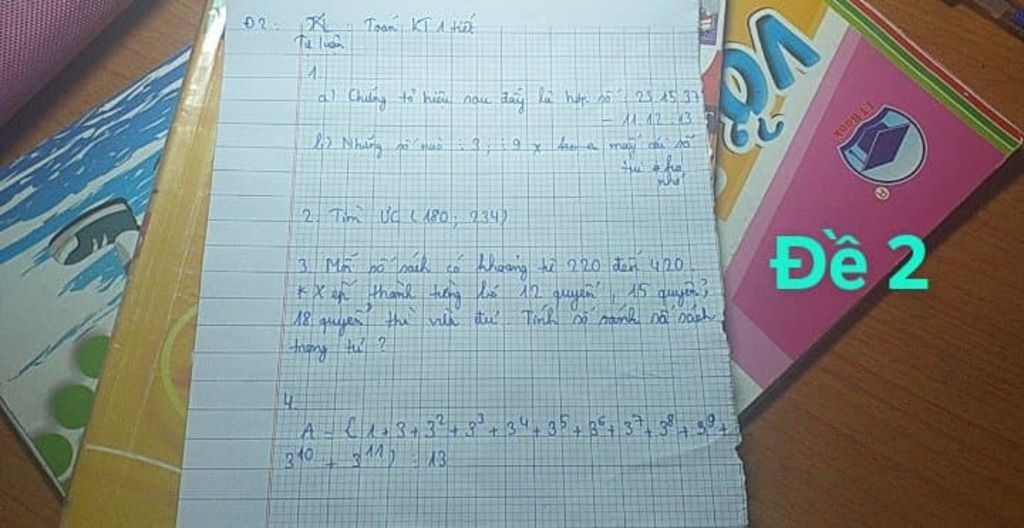 Đ2: KL : Toán KT 1 tiết
Tự luận
1.
a) Chứng tỏ hiệu sau đây là hợp số : 25.15.37
- 11.12.13
b) Những số nào : 3 , : 9 x
2. Tìm ƯC (180 ; 234)
3. Một số sách có khoảng từ 220 đến 420.
* Xếp thành từng bó 12 quyển, 15 quyển,
18 quyển thì vừa đủ. Tính số sách
trong tủ ?
4.
A = (1 + 3 + 3² + 3³ + 3⁴ + 3⁵ + 3⁶ + 3⁷ + 3⁸ + 3⁹ +
3¹⁰ + 3¹¹) : 13
VỞ
LTT BOOK
Đề 2